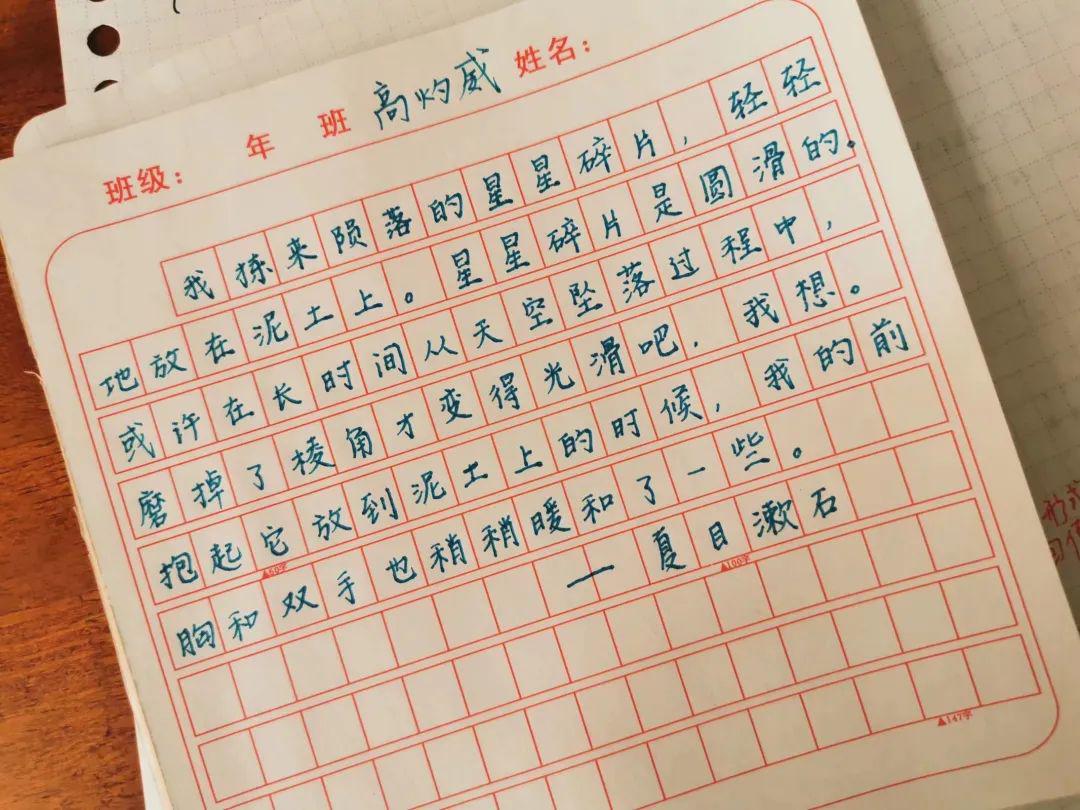 班级: 年 班 高灼威 姓名:
我拣来陨落的星星碎片,轻轻
地放在泥土上。星星碎片是圆滑的。
或许在长时间从天空坠落过程中,
磨掉了棱角才变得光滑吧,我想。
抱起它放到泥土上的时候,我的前
▲50字
胸和双手也稍稍暖和了一些。
▲100字
— 夏目漱石
▲147字